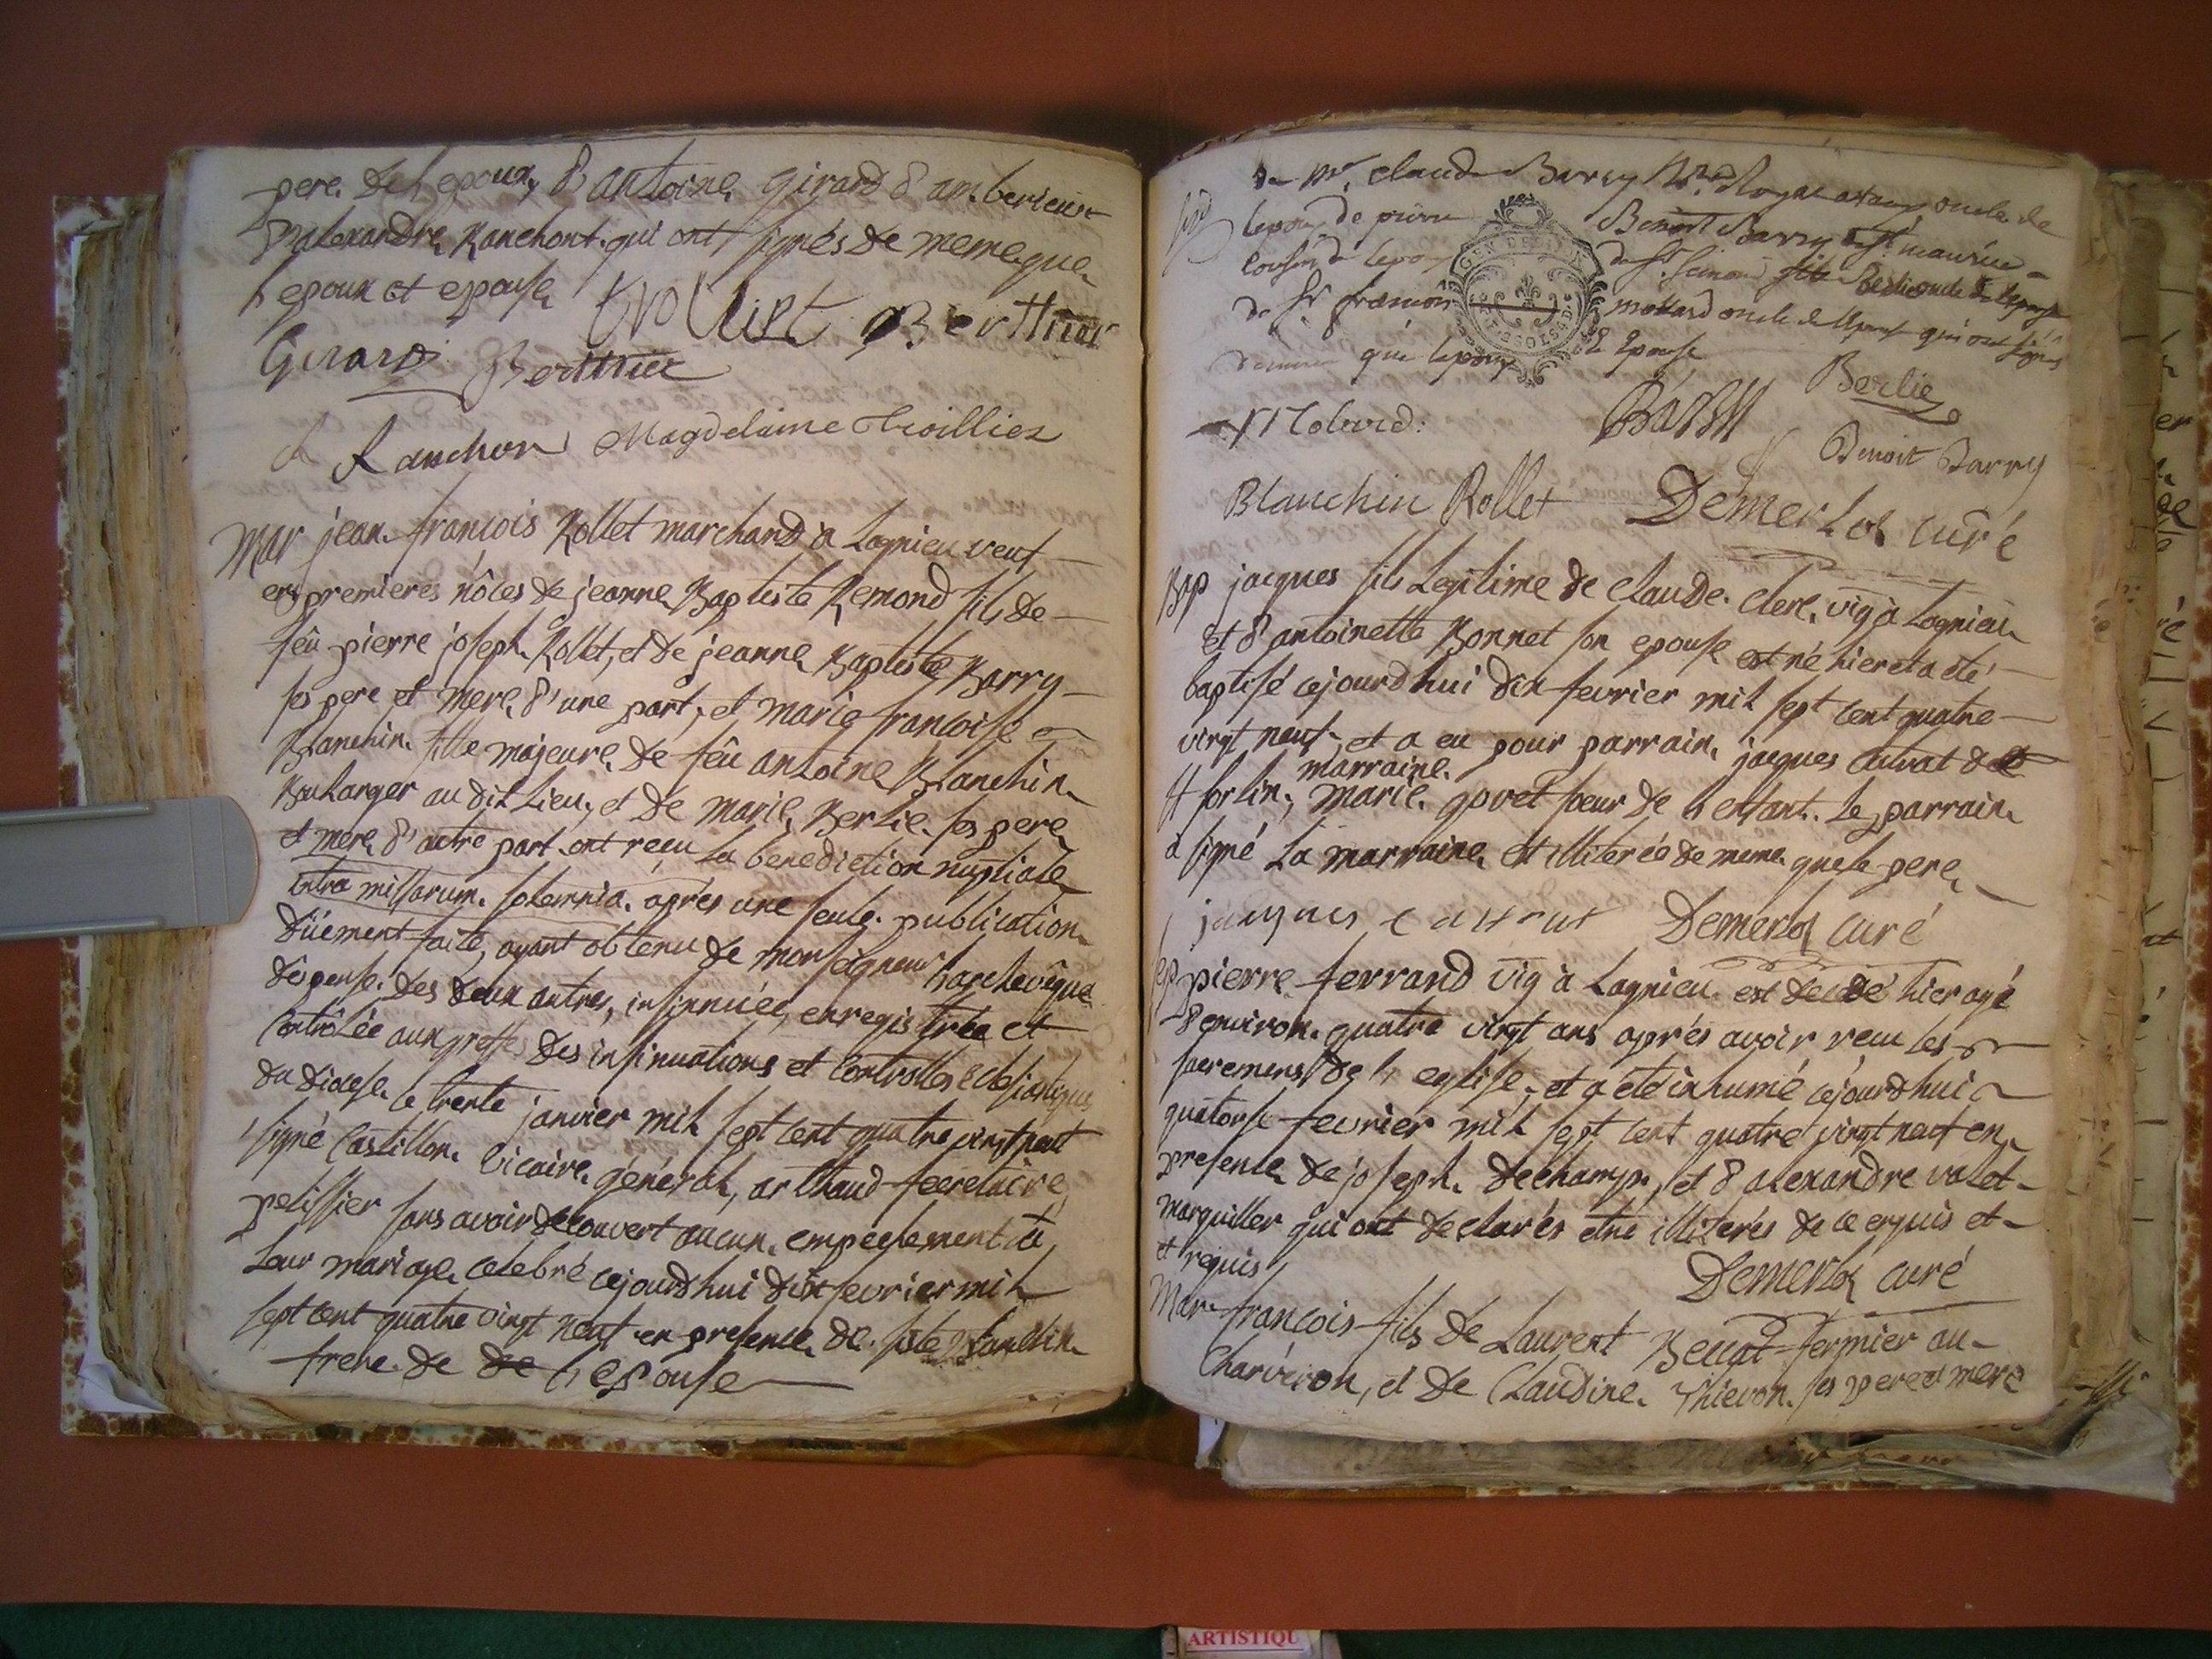 pere de l epoux, d'antoine girard d'amberieux
d'alexandre Ranchont qui ont signés de meme que
l epoux et epouse Trolliet Berthier
Girard Berthier
Ranchon Magdelaine Troillier
Mar jean francois Rollet marchand à Lagnieu veuf
en premieres nôces de jeanne Baptiste Remond fils de
feû pierre joseph Rollet, et de jeanne Baptiste Barry
ses pere et mere d'une part, et marie francoise
Blanchin fille majeure de feû antoine Blanchin
Boulanger au dit Lieu, et de marie Berlie ses pere
et mere d'autre part ont recu la benediction nuptiale
intra missarum solemnia après une seule publication
düement faite, ayant obtenu de monseigneur l'archevêque
dispense des deux autres, insinuée, enregistrée et
Contrôlée aux greffes des insinuations et Controlles eclesiastiques
du diocese le trente janvier mil sept cent quatre vingt neuf
signé Castillon vicaire général, arthaud secretaire
pelissier sans avoir decouvert aucun empechement à
leur mariage celebré cejourdhui dix fevrier mil
sept cent quatre vingt neuf en presence de Blanchin
frere de de l epouse
de mr claude Barry oncle de
lepoux de pierre Benoit Barry de st maurice
cousin de lepoux de sr Berlie oncle de lepouse
de sr francois mollard oncle de lepouse qui ont signés
de meme que lepoux & lepouse
GEN DE
SOLS 4 D
Molard. Barry Berlie
Benoit Barry
Blanchin Rollet Demerloz curé
Bap jacques fils Legitime de claude clerc vig à Lagnieu
et d'antoinette Bonnet son epouse est né hier et a eté
baptisé cejourdhui dix fevrier mil sept cent quatre
vingt neuf et a eu pour parrain jacques de
marraine
st sorlin, marie govet soeur de l enfant. Le parrain
a signé La marraine et illiterée de meme que le pere
jacques Demerloz curé
sep pierre ferrand vig à Lagnieu est decedé hier agé
d'environ quatre vingt ans après avoir recu les
sacremens de l eglise, et a eté inhumé cejourdhui
quatorse fevrier mil sept cent quatre vingt neuf en
presence de joseph Dechamp, et d'alexandre valet
marguiller qui ont declarés etre illiterés de ce enquis et
et requis Demerloz curé
Mar francois fils de Laurent fermier au
Charveron, et de Claudine Thievon ses pere et mere
ARTISTIQU